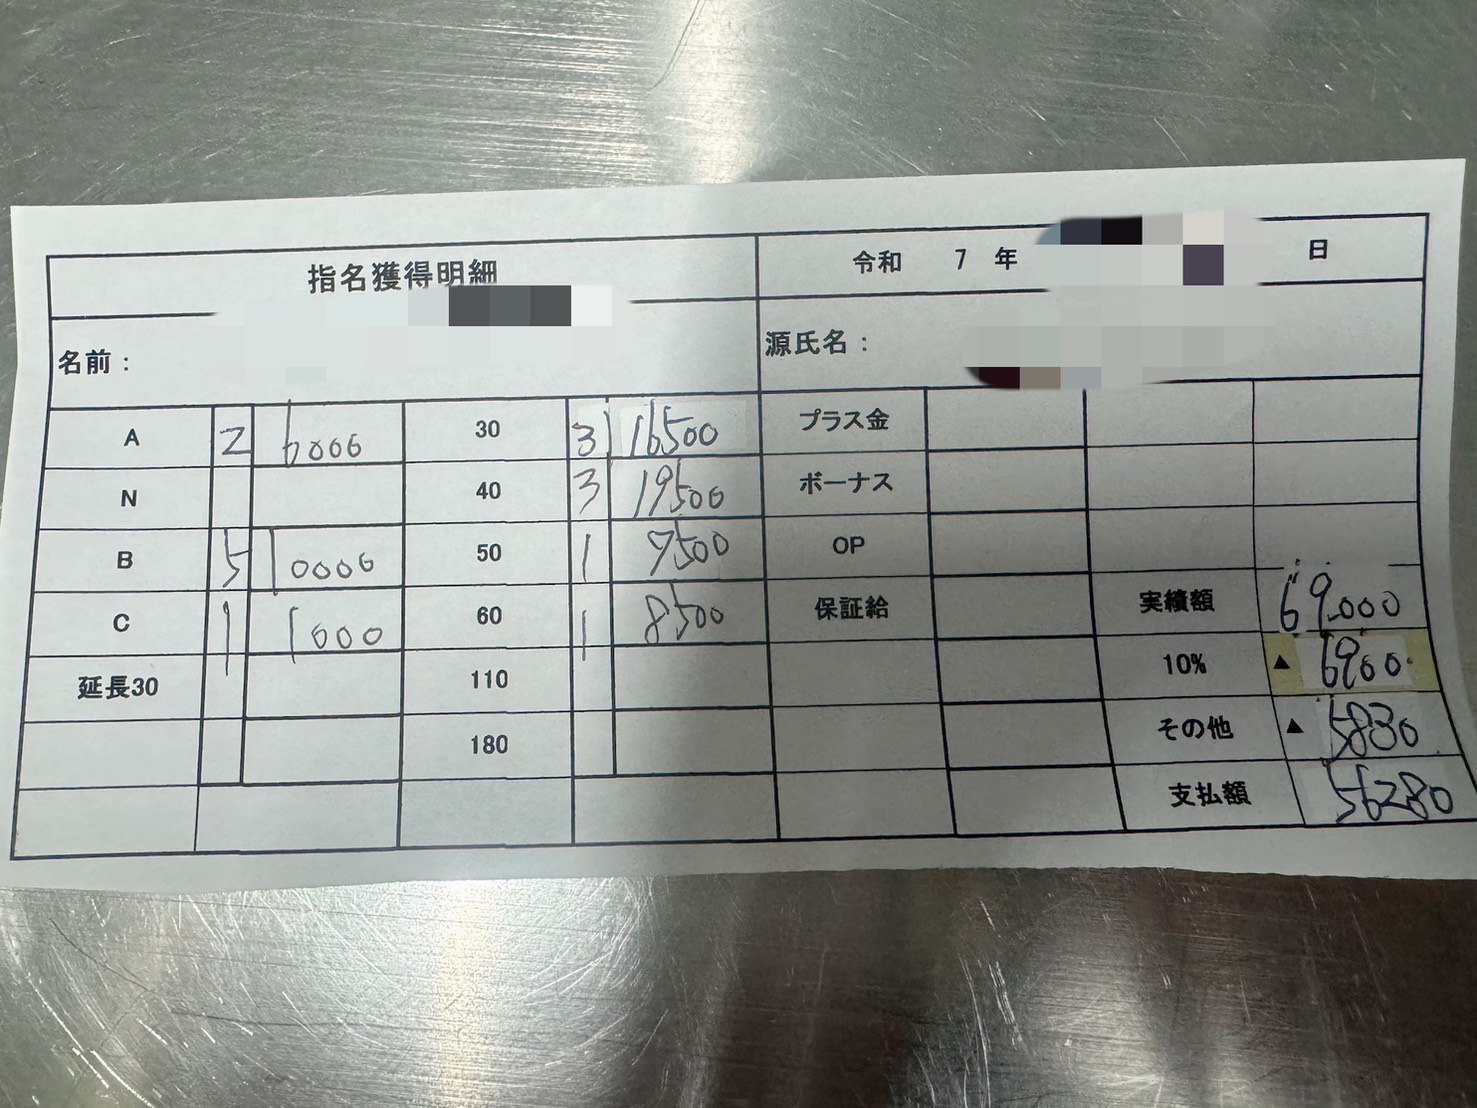 指名獲得明細 令和 7 年 日
名前： 源氏名：
A 2 6000 30 3 16500 プラス金
N 40 3 19500 ボーナス
B 5 10000 50 1 7500 OP
C 1 1000 60 1 8500 保証給 実績額 69.000
延長30 110 10% ▲ 6900
180 その他 ▲ 5830
支払額 56280